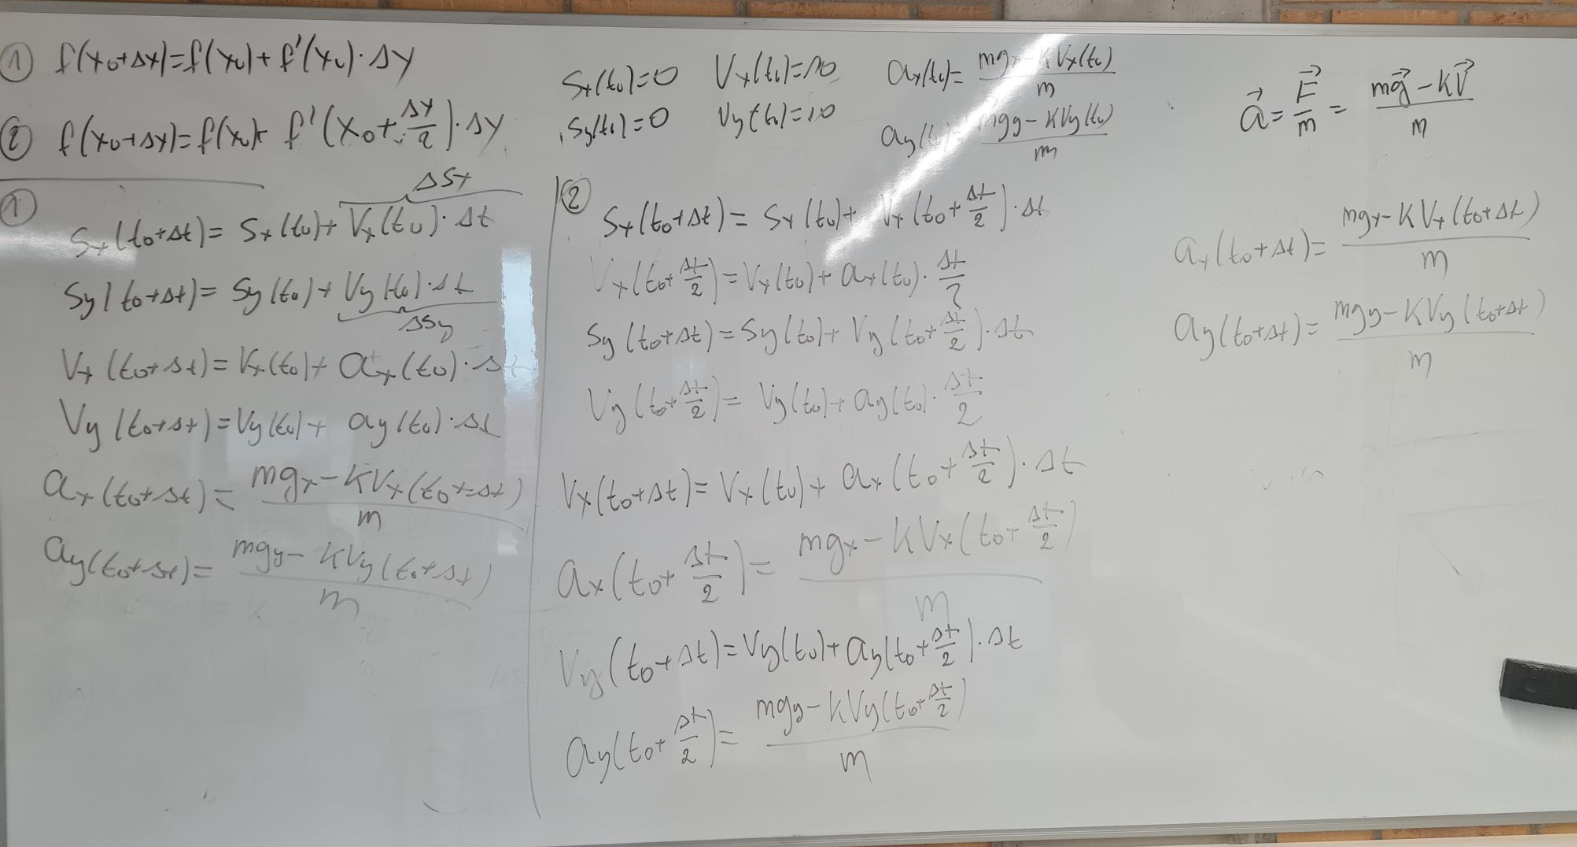 ① f(x₀+Δx)=f(x₀)+f'(x₀)·Δx
② f(x₀+Δx)=f(x₀)+ f'(x₀+Δx/2)·Δx
Sx(t₀)=0 Vx(t₀)=10 ax(t₀)= (mgx-kVx(t₀))/m
Sy(t₀)=0 Vy(t₀)=10 ay(t₀)= (mgy-kVy(t₀))/m
a⃗ = F⃗/m = (mg⃗-kV⃗)/m
①
ΔSx
Sx(t₀+Δt)= Sx(t₀)+Vx(t₀)·Δt
Sy(t₀+Δt)= Sy(t₀)+Vy(t₀)·Δt
ΔSy
Vx(t₀+Δt)=Vx(t₀)+ ax(t₀)·Δt
Vy(t₀+Δt)=Vy(t₀)+ ay(t₀)·Δt
ax(t₀+Δt)= (mgx-kVx(t₀+Δt))/m
ay(t₀+Δt)= (mgy-kVy(t₀+Δt))/m
②
Sx(t₀+Δt)= Sx(t₀)+ Vx(t₀+Δt/2)·Δt
Vx(t₀+Δt/2)=Vx(t₀)+ ax(t₀)·Δt/2
Sy(t₀+Δt)=Sy(t₀)+ Vy(t₀+Δt/2)·Δt
Vy(t₀+Δt/2)= Vy(t₀)+ ay(t₀)·Δt/2
Vx(t₀+Δt)= Vx(t₀)+ ax(t₀+Δt/2)·Δt
ax(t₀+Δt/2)= (mgx-kVx(t₀+Δt/2))/m
Vy(t₀+Δt)=Vy(t₀)+ay(t₀+Δt/2)·Δt
ay(t₀+Δt/2)= (mgy-kVy(t₀+Δt/2))/m
ax(t₀+Δt)= (mgx-kVx(t₀+Δt))/m
ay(t₀+Δt)= (mgy-kVy(t₀+Δt))/m